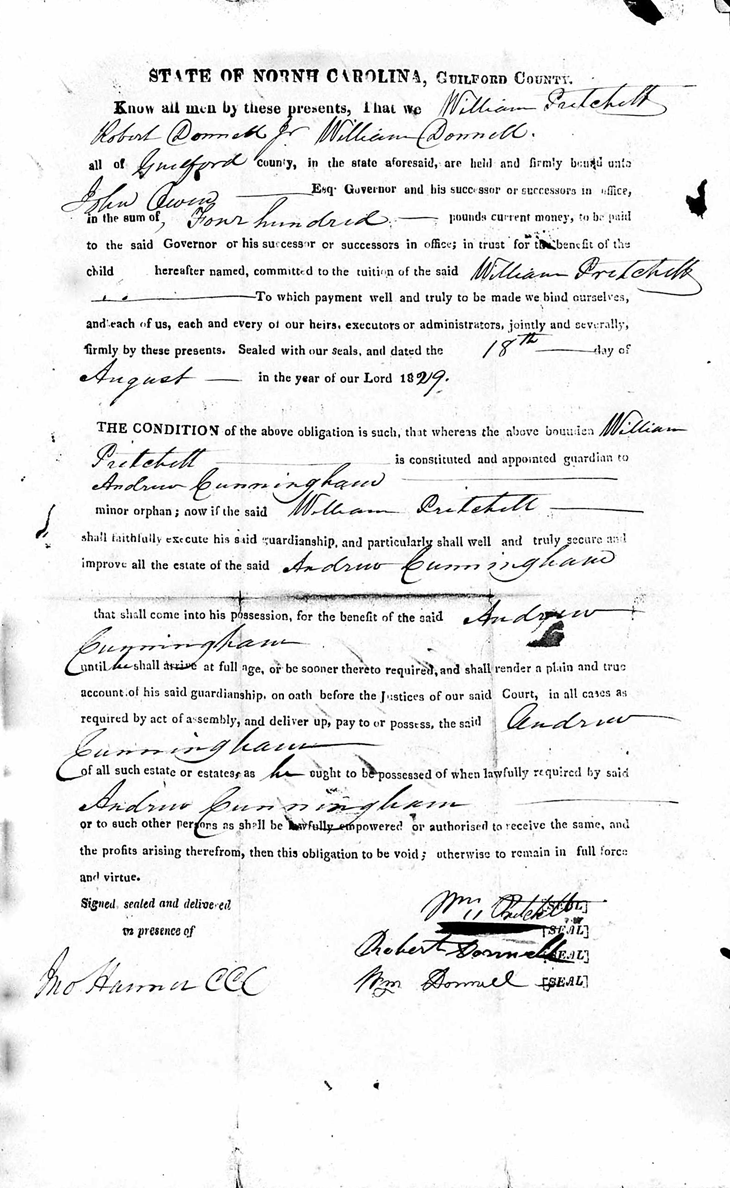 STATE OF NORNH CAROLINA, GUILFORD COUNTY.
Know all men by these presents, That we William Pritchett
Robert Donnell Jr William Donnell.
all of Guilford county, in the state aforesaid, are held and firmly bound unto
John Owen Esq. Governor and his successor or successors in office,
in the sum of, Four hundred pounds current money, to be paid
to the said Governor or his successor or successors in office; in trust for the benefit of the
child hereafter named, committed to the tuition of the said William Pritchett
To which payment well and truly to be made we bind ourselves,
and each of us, each and every of our heirs, executors or administrators, jointly and severally,
firmly by these presents. Sealed with our seals, and dated the 18th day of
August in the year of our Lord 1829.
THE CONDITION of the above obligation is such, that whereas the above bounden William
Pritchett is constituted and appointed guardian to
Andrew Cunningham
minor orphan; now if the said William Pritchett
shall faithfully execute his said guardianship, and particularly shall well and truly secure and
improve all the estate of the said Andrew Cunningham
that shall come into his possession, for the benefit of the said Andrew
Cunningham
until he shall arrive at full age, or be sooner thereto required, and shall render a plain and true
account of his said guardianship, on oath before the Justices of our said Court, in all cases as
required by act of assembly, and deliver up, pay to or possess, the said Andrew
Cunningham
of all such estate or estates, as he ought to be possessed of when lawfully required by said
Andrew Cunningham
or to such other persons as shall be lawfully empowered or authorised to receive the same, and
the profits arising therefrom, then this obligation to be void; otherwise to remain in full force
and virtue.
Signed, sealed and delivered
in presence of
Wm Pritchett [SEAL]
[SEAL]
Robert Donnell [SEAL]
Jno Hanner CCC
Wm Donnell [SEAL]